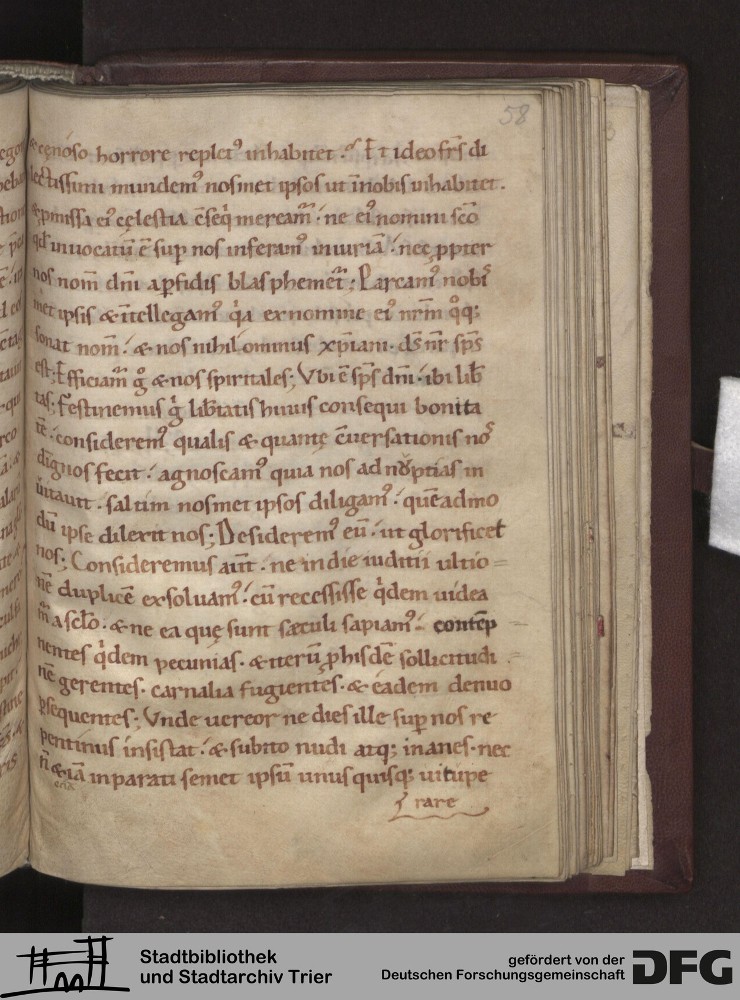 58
& cęnoso horrore replet᷒ inhabitet. Et ideo fr̄s di
lectissimi mundem᷒ nosmet ipsos ut in nobis inhabitet.
& ꝓmissa ei᷒ cęlestia c̄seq̇ meream̄: ne ei᷒ nomini sc̄o
qđ inuocatū ē sup̄ nos inferam᷒ iniuriā: nec ꝓpter
nos nom̄ dn̄i a ꝑfidis blasphemet̄; Parcam᷒ nobis
met ipsis & intellegam᷒ q̇a ex nomine ei᷒ nr̄m q̊q;
sonat nom̄. & nos nihilominus xp̄iani. ds̄ nr̄ sp̄s
est; Efficiam̄ g̊ & nos spiritales; Vbi ē sp̄s dn̄i. ibi lib̄
tas; Festinemus g̊ lib̄tatis huius consequi bonita
tē. considerem᷒ qualis & quantę c̄uersationis nos
dignos fecit. agnoscam᷒ quia nos ad nuptias in
uitauit. saltim nosmet ipsos diligam᷒. quēadmo
dū ipse dilexit nos; Desiderem᷒ eū. ut glorificet
nos; Consideremus aūt. ne in die iuditii ultio=
nē duplicē exsoluam᷒. cū recessisse q̇dem uidea
m̄ a sclo. & ne ea quę sunt sæculi sapiam᷒. contēp
nentes q̇dem pecunias. & iterū ꝓ hisdē sollicitudi
nē gerentes. carnalia fugientes. & eadem denuo
ꝑsequentes; Vnde uereor ne dies ille sup̄ nos re
pentinus insistat. & subito nudi atq; inanes. nec
n̄ & iā inparati semet ipsū unusquisq; uitupe
rare
Stadtbibliothek
und Stadtarchiv Trier
gefördert von der
Deutschen Forschungsgemeinschaft
DFG